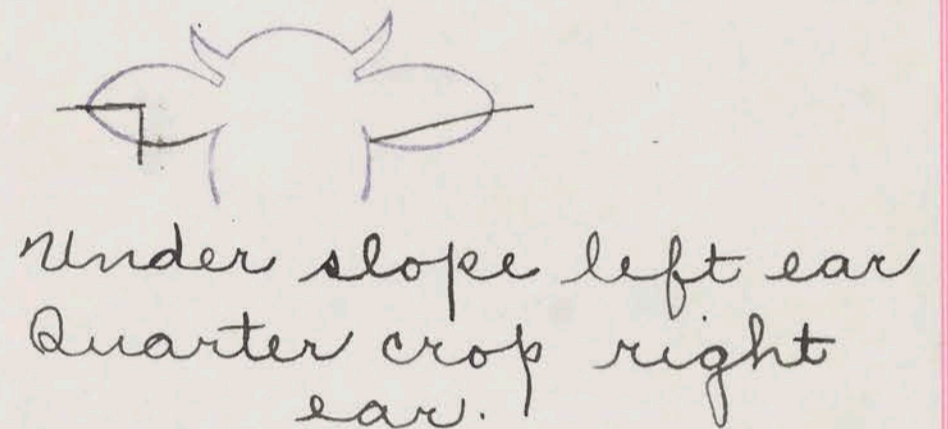 Under slope left ear
Quarter crop right
ear.